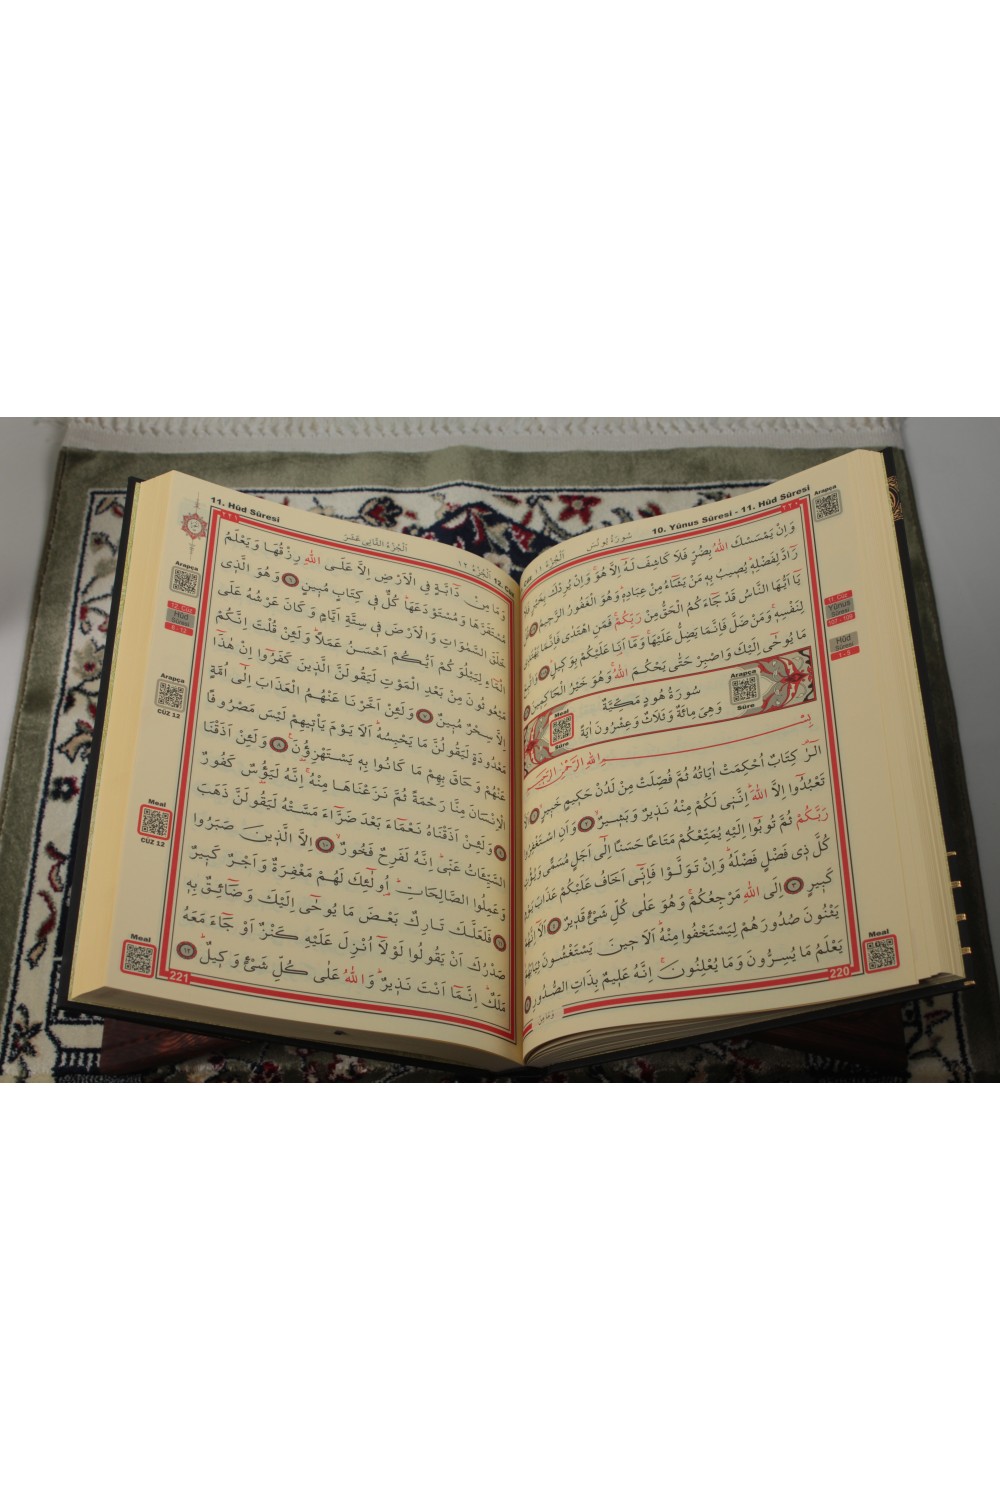 10. Yûnus Sûresi - 11. Hûd Sûresi
سُورَةُ يُونُسَ
اَلْجُزْءُ ١١
Arapça
وَاِنْ يَمْسَسْكَ اللّٰهُ بِضُرٍّ فَلَا كَاشِفَ لَهُٓ اِلَّا هُوَۚ وَاِنْ يُرِدْكَ بِخَيْرٍ
رَٓادَّ لِفَضْلِهٖؕ يُصٖيبُ بِهٖ مَنْ يَشَٓاءُ مِنْ عِبَادِهٖؕ وَهُوَ الْغَفُورُ الرَّحٖيمُ
يَٓا اَيُّهَا النَّاسُ قَدْ جَٓاءَكُمُ الْحَقُّ مِنْ رَبِّكُمْۚ فَمَنِ اهْتَدٰى فَاِنَّمَا يَهْتَدٖي
لِنَفْسِهٖۚ وَمَنْ ضَلَّ فَاِنَّمَا يَضِلُّ عَلَيْهَاۚ وَمَٓا اَنَا۬ عَلَيْكُمْ بِوَكٖيلٍؕ وَاتَّبِعْ
مَا يُوحٰٓى اِلَيْكَ وَاصْبِرْ حَتّٰى يَحْكُمَ اللّٰهُۚ وَهُوَ خَيْرُ الْحَاكِمٖينَ
11. Cüz
Yûnus
Sûresi
107 - 109
Hûd
Sûresi
1 - 5
سُورَةُ هُودٍ مَكِّيَّةٌ
وَهِيَ مِائَةٌ وَثَلَاثٌ وَعِشْرُونَ اٰيَةً
Arapça
Sûre
Meal
Sûre
بِسْمِ اللّٰهِ الرَّحْمٰنِ الرَّحٖيمِ
الٓرٰ۠ كِتَابٌ اُحْكِمَتْ اٰيَاتُهُ ثُمَّ فُصِّلَتْ مِنْ لَدُنْ حَكٖيمٍ خَبٖيرٍۙ
تَعْبُدُٓوا اِلَّا اللّٰهَؕ اِنَّنٖي لَكُمْ مِنْهُ نَذٖيرٌ وَبَشٖيرٌۙ وَاَنِ اسْتَغْفِرُوا
رَبَّكُمْ ثُمَّ تُوبُٓوا اِلَيْهِ يُمَتِّعْكُمْ مَتَاعًا حَسَنًا اِلٰٓى اَجَلٍ مُسَمًّى وَيُؤْتِ
كُلَّ ذٖي فَضْلٍ فَضْلَهُؕ وَاِنْ تَوَلَّوْا فَاِنّٖٓي اَخَافُ عَلَيْكُمْ عَذَابَ يَوْمٍ
كَبٖيرٍ اِلَى اللّٰهِ مَرْجِعُكُمْۚ وَهُوَ عَلٰى كُلِّ شَيْءٍ قَدٖيرٌ اَلَٓا اِنَّهُمْ
يَثْنُونَ صُدُورَهُمْ لِيَسْتَخْفُوا مِنْهُؕ اَلَا حٖينَ يَسْتَغْشُونَ ثِيَابَهُمْۙ
يَعْلَمُ مَا يُسِرُّونَ وَمَا يُعْلِنُونَۚ اِنَّهُ عَلٖيمٌ بِذَاتِ الصُّدُورِ
Meal
220
وَمَا مِنْ
11. Hûd Sûresi
اَلْجُزْءُ الثَّانٖي عَشَرَ
اَلْجُزْءُ ١٢
12. Cüz
٢٢١
وَمَا مِنْ دَٓابَّةٍ فِي الْاَرْضِ اِلَّا عَلَى اللّٰهِ رِزْقُهَا وَيَعْلَمُ
مُسْتَقَرَّهَا وَمُسْتَوْدَعَهَاؕ كُلٌّ فٖي كِتَابٍ مُبٖينٍ وَهُوَ الَّذٖي
خَلَقَ السَّمٰوَاتِ وَالْاَرْضَ فٖي سِتَّةِ اَيَّامٍ وَكَانَ عَرْشُهُ عَلَى
الْمَٓاءِ لِيَبْلُوَكُمْ اَيُّكُمْ اَحْسَنُ عَمَلًاؕ وَلَئِنْ قُلْتَ اِنَّكُمْ
مَبْعُوثُونَ مِنْ بَعْدِ الْمَوْتِ لَيَقُولَنَّ الَّذٖينَ كَفَرُٓوا اِنْ هٰذَٓا
اِلَّا سِحْرٌ مُبٖينٌ وَلَئِنْ اَخَّرْنَا عَنْهُمُ الْعَذَابَ اِلٰٓى اُمَّةٍ
مَعْدُودَةٍ لَيَقُولُنَّ مَا يَحْبِسُهُؕ اَلَا يَوْمَ يَأْتٖيهِمْ لَيْسَ مَصْرُوفًا
عَنْهُمْ وَحَاقَ بِهِمْ مَا كَانُوا بِهٖ يَسْتَهْزِؤُ۫نَ۟ وَلَئِنْ اَذَقْنَا
الْاِنْسَانَ مِنَّا رَحْمَةً ثُمَّ نَزَعْنَاهَا مِنْهُۚ اِنَّهُ لَيَؤُ۫سٌ كَفُورٌ
وَلَئِنْ اَذَقْنَاهُ نَعْمَٓاءَ بَعْدَ ضَرَّٓاءَ مَسَّتْهُ لَيَقُولَنَّ ذَهَبَ
السَّيِّـَٔاتُ عَنّٖيؕ اِنَّهُ لَفَرِحٌ فَخُورٌۙ اِلَّا الَّذٖينَ صَبَرُوا
وَعَمِلُوا الصَّالِحَاتِؕ اُو۬لٰٓئِكَ لَهُمْ مَغْفِرَةٌ وَاَجْرٌ كَبٖيرٌ
فَلَعَلَّكَ تَارِكٌ بَعْضَ مَا يُوحٰٓى اِلَيْكَ وَضَٓائِقٌ بِهٖ
صَدْرُكَ اَنْ يَقُولُوا لَوْلَٓا اُنْزِلَ عَلَيْهِ كَنْزٌ اَوْ جَٓاءَ مَعَهُ
مَلَكٌؕ اِنَّمَٓا اَنْتَ نَذٖيرٌؕ وَاللّٰهُ عَلٰى كُلِّ شَيْءٍ وَكٖيلٌؕ
Arapça
12. Cüz
Hûd
Sûresi
6 - 12
Arapça
CÜZ 12
Meal
CÜZ 12
Meal
221